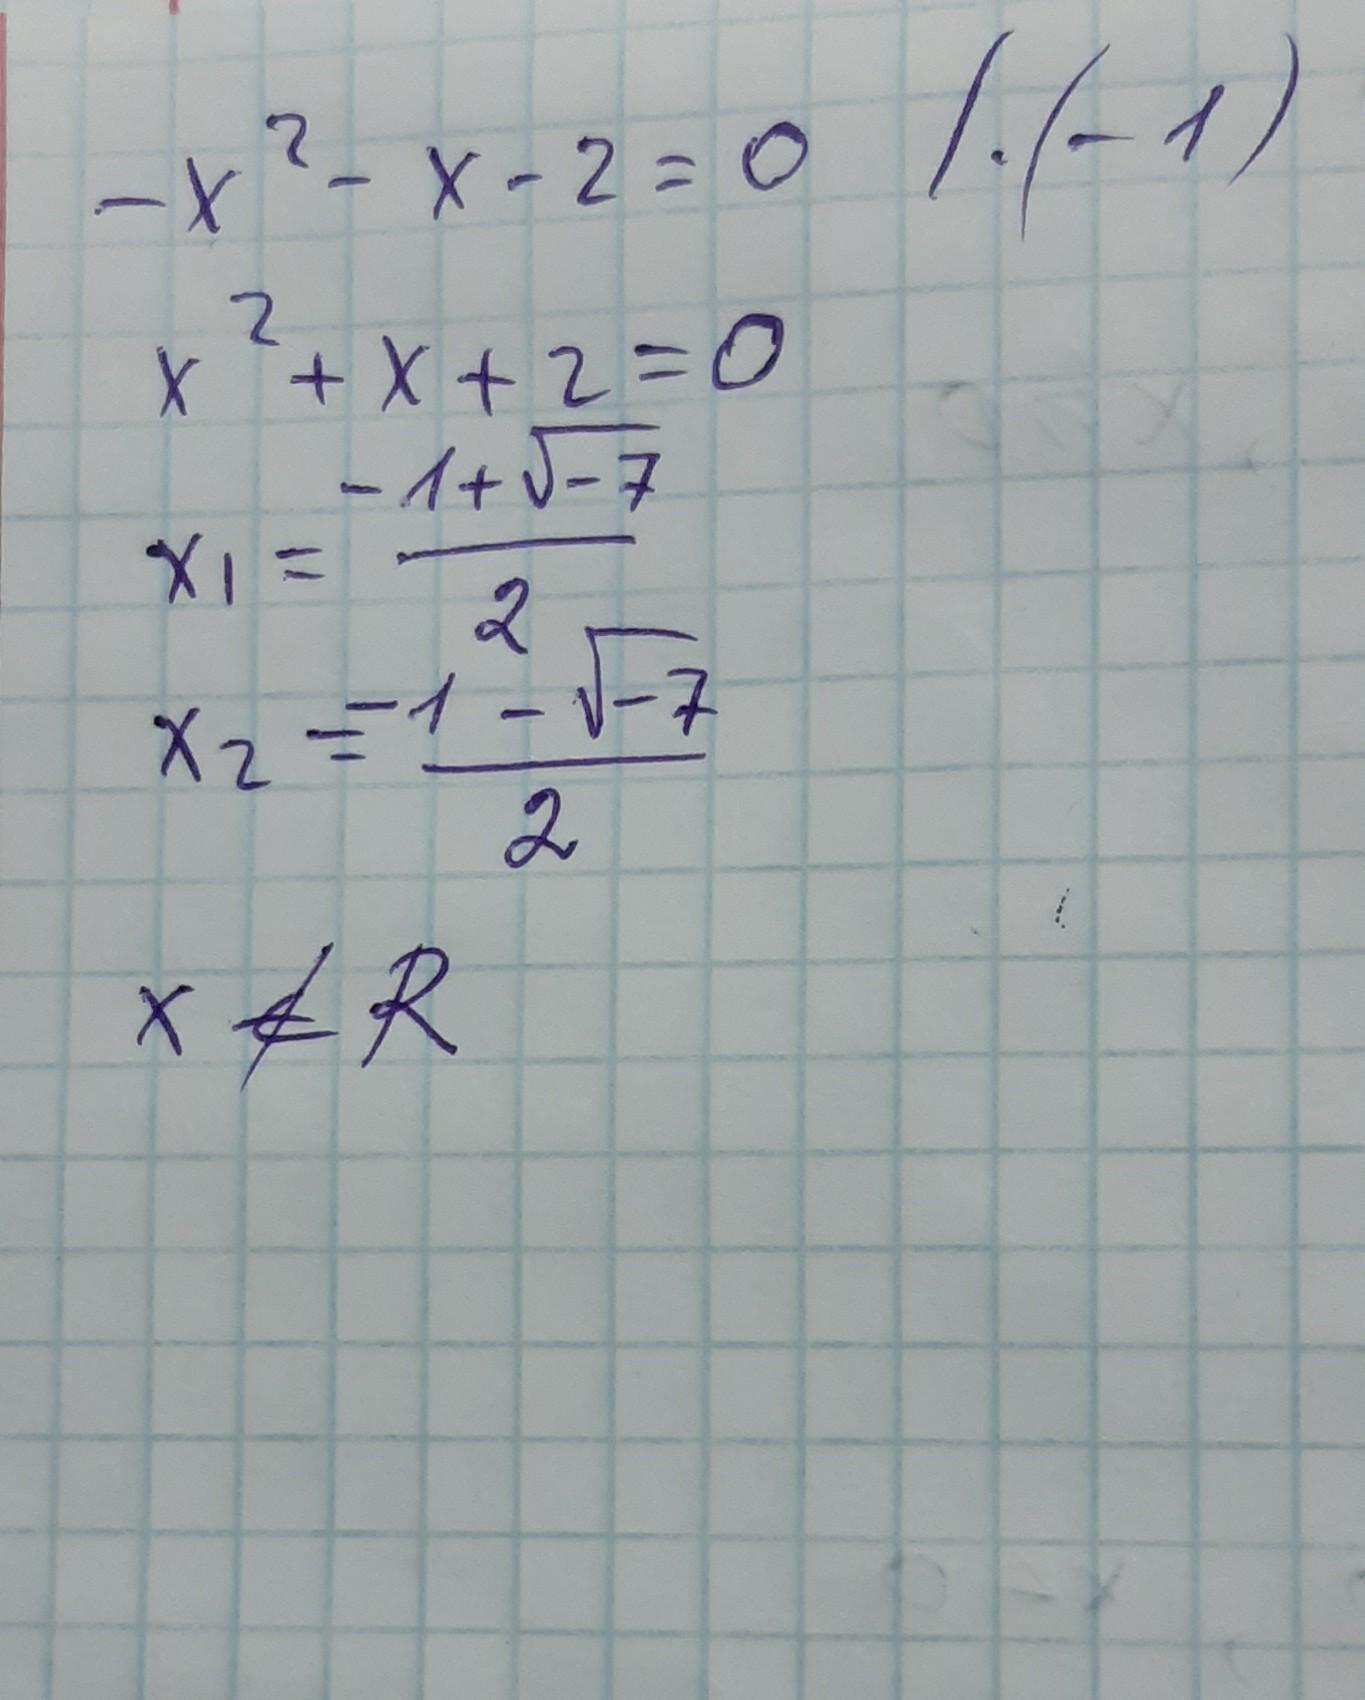 -x² - x - 2 = 0 /·(-1)
x² + x + 2 = 0
x₁ = (-1+√-7)/2
x₂ = (-1-√-7)/2
x ∉ R